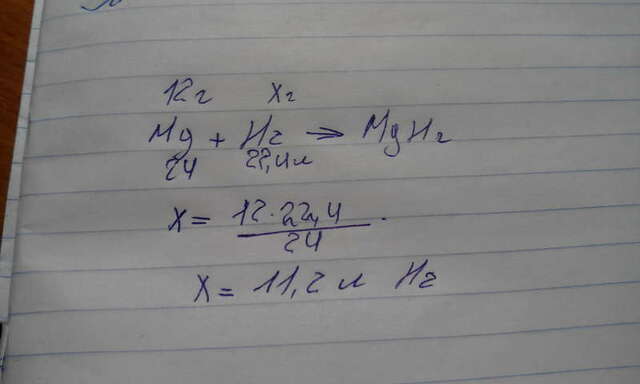 12г Xг
Mg + H₂ → MgH₂
24 22,4л
X = 12·22,4
24
X = 11,2 л H₂